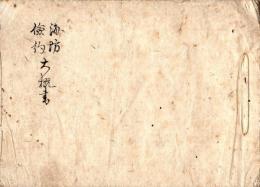 海防
倹約大概書